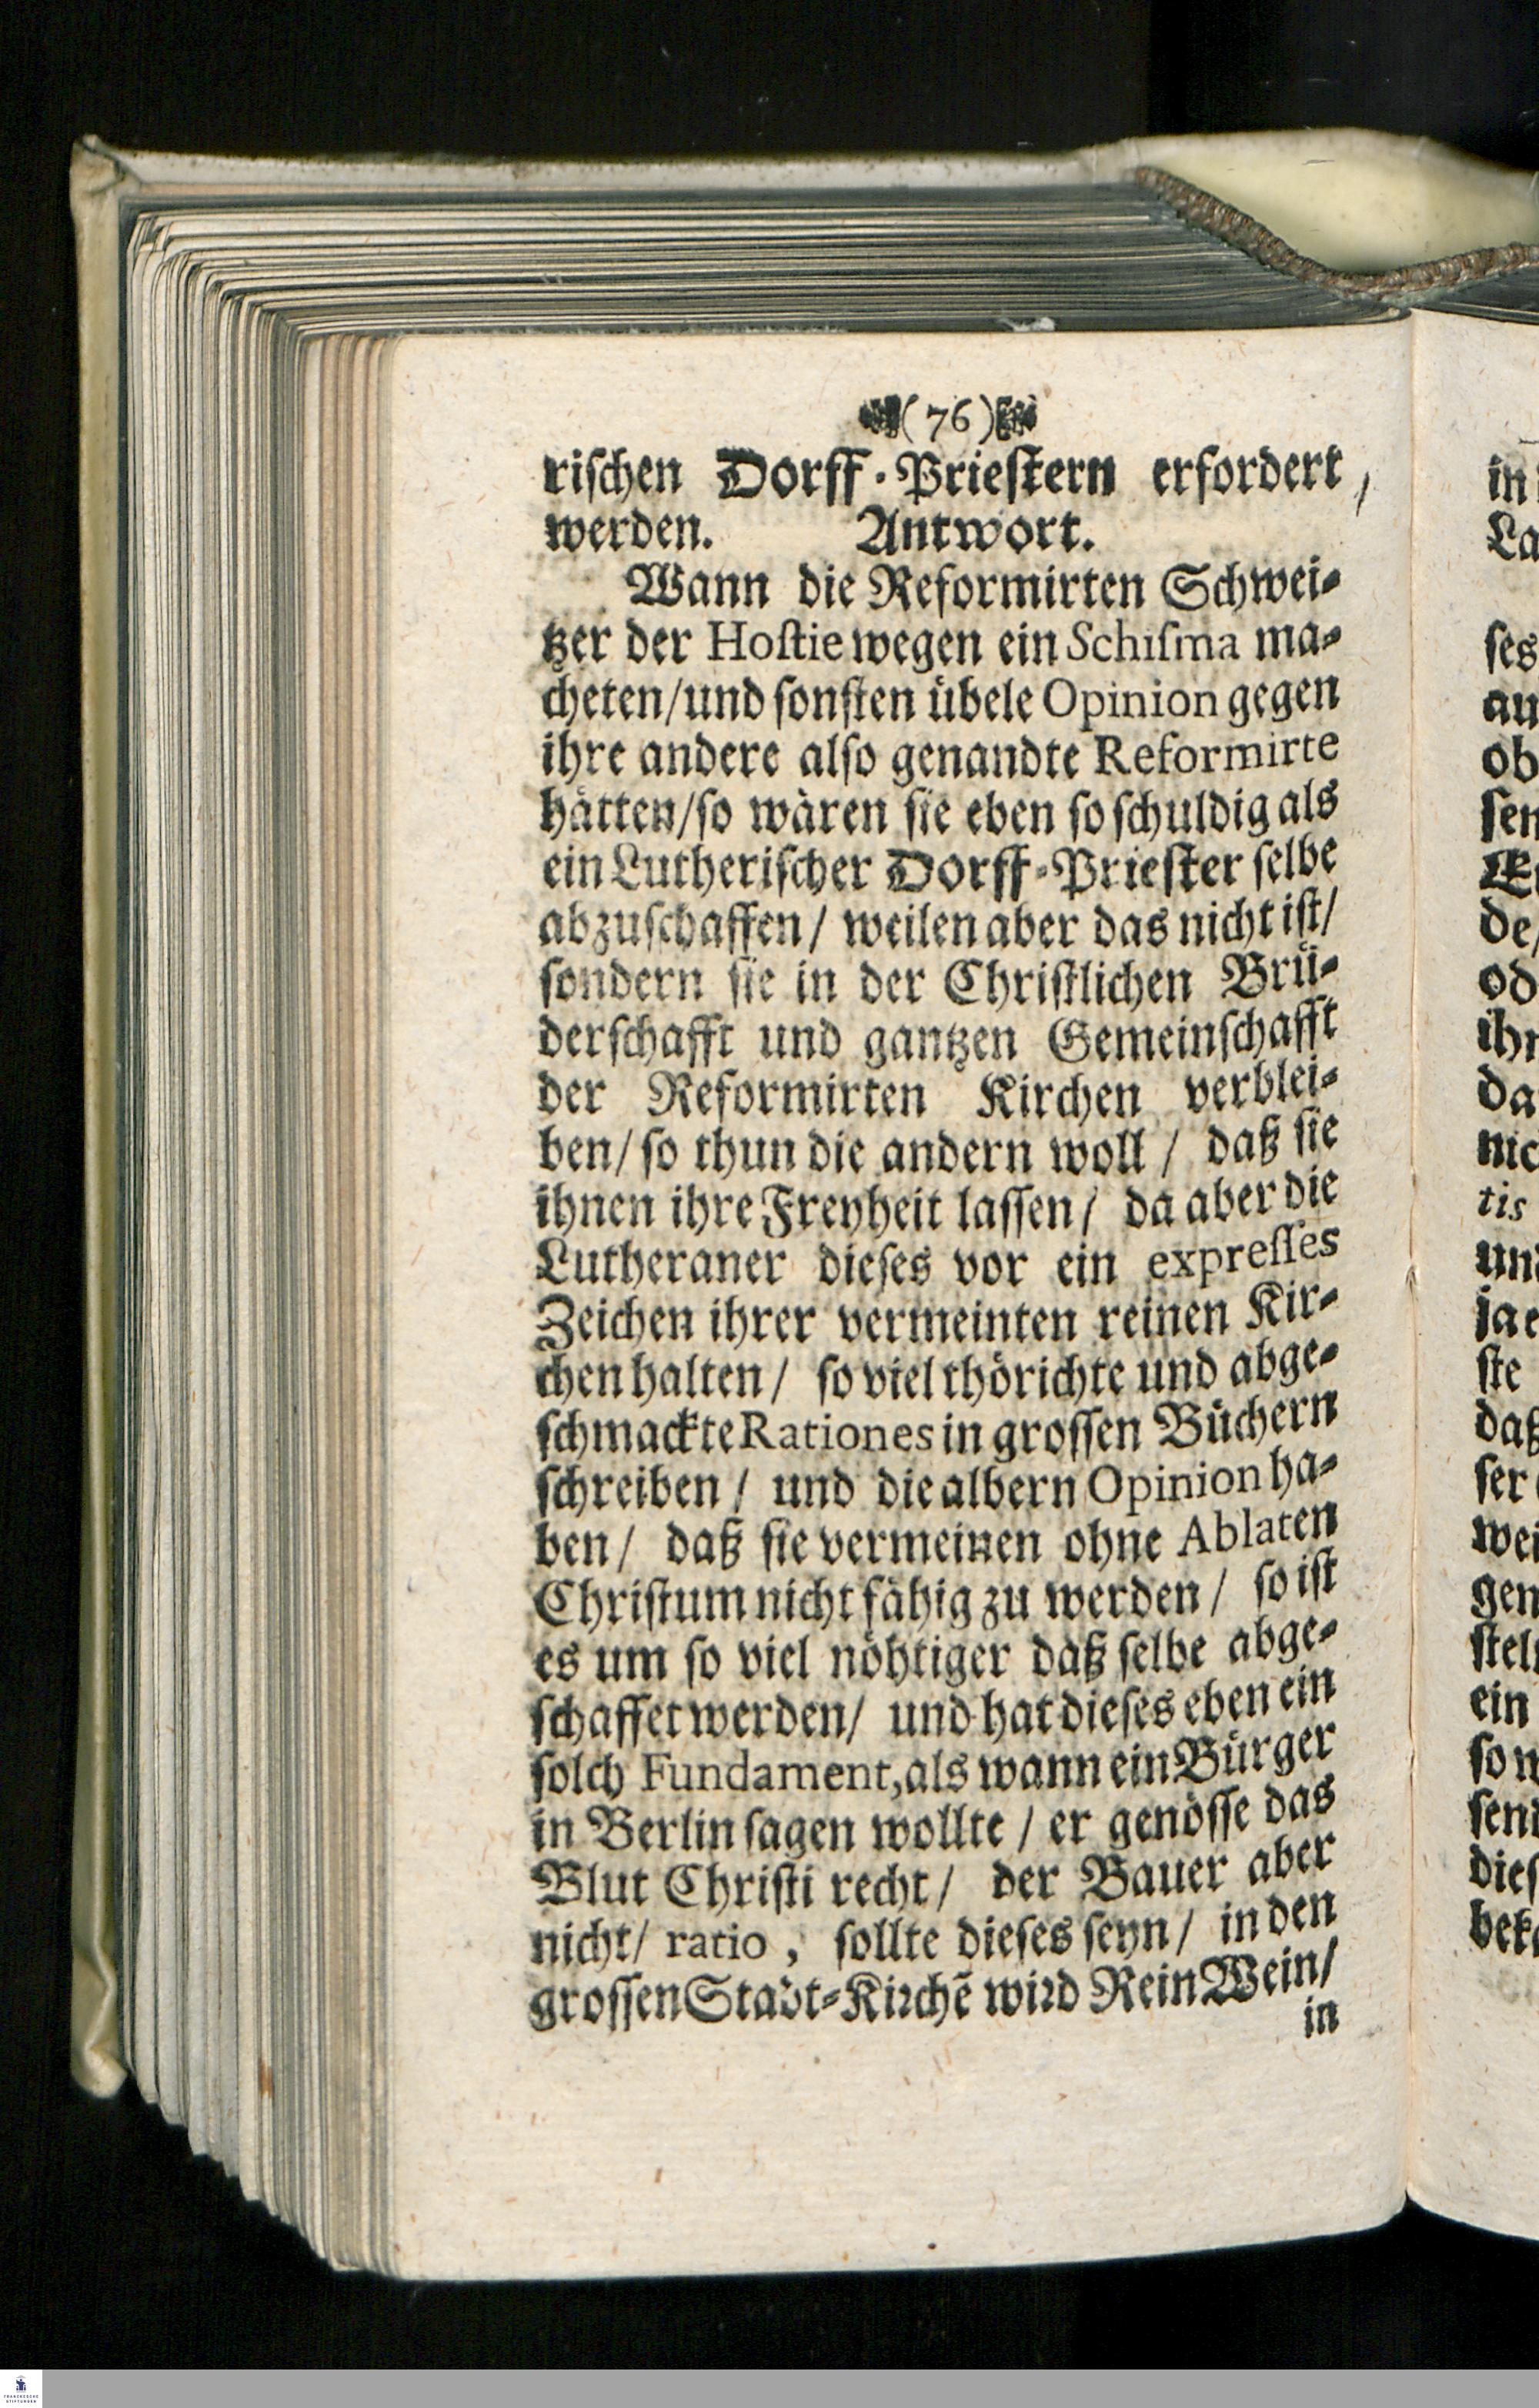 (76)
rischen Dorff-Priestern erfordert /
werden. Antwort.
Wann die Reformirten Schwei-
tzer der Hostie wegen ein Schisma ma-
cheten/und sonsten übele Opinion gegen
ihre andere also genandte Reformirte
hätten/so wären sie eben so schuldig als
ein Lutherischer Dorff-Priester selbe
abzuschaffen/ weilen aber das nicht ist/
sondern sie in der Christlichen Brü-
derschafft und gantzen Gemeinschafft
der Reformirten Kirchen verblei-
ben/ so thun die andern woll / daß sie
ihnen ihre Freyheit lassen/ da aber die
Lutheraner dieses vor ein expresses
Zeichen ihrer vermeinten reinen Kir-
chen halten/ so viel thörichte und abge-
schmackte Rationes in grossen Büchern
schreiben / und die albern Opinion ha-
ben/ daß sie vermeinen ohne Ablaten
Christum nicht fähig zu werden/ so ist
es um so viel nöhtiger daß selbe abge-
schaffet werden/ und hat dieses eben ein
solch Fundament, als wann ein Bürger
in Berlin sagen wollte / er genösse das
Blut Christi recht/ der Bauer aber
nicht/ ratio, sollte dieses seyn/ in den
grossen Stadt-Kirchē wird Rein Wein/
in
in
La
ses
au
ob
sen
de/
od
ihr
da
nic
tis
und
ja e
ste
daß
ser
wei
gen
stel
ein
so w
send
dies
bek
FRANCKESCHE
STIFTUNGEN